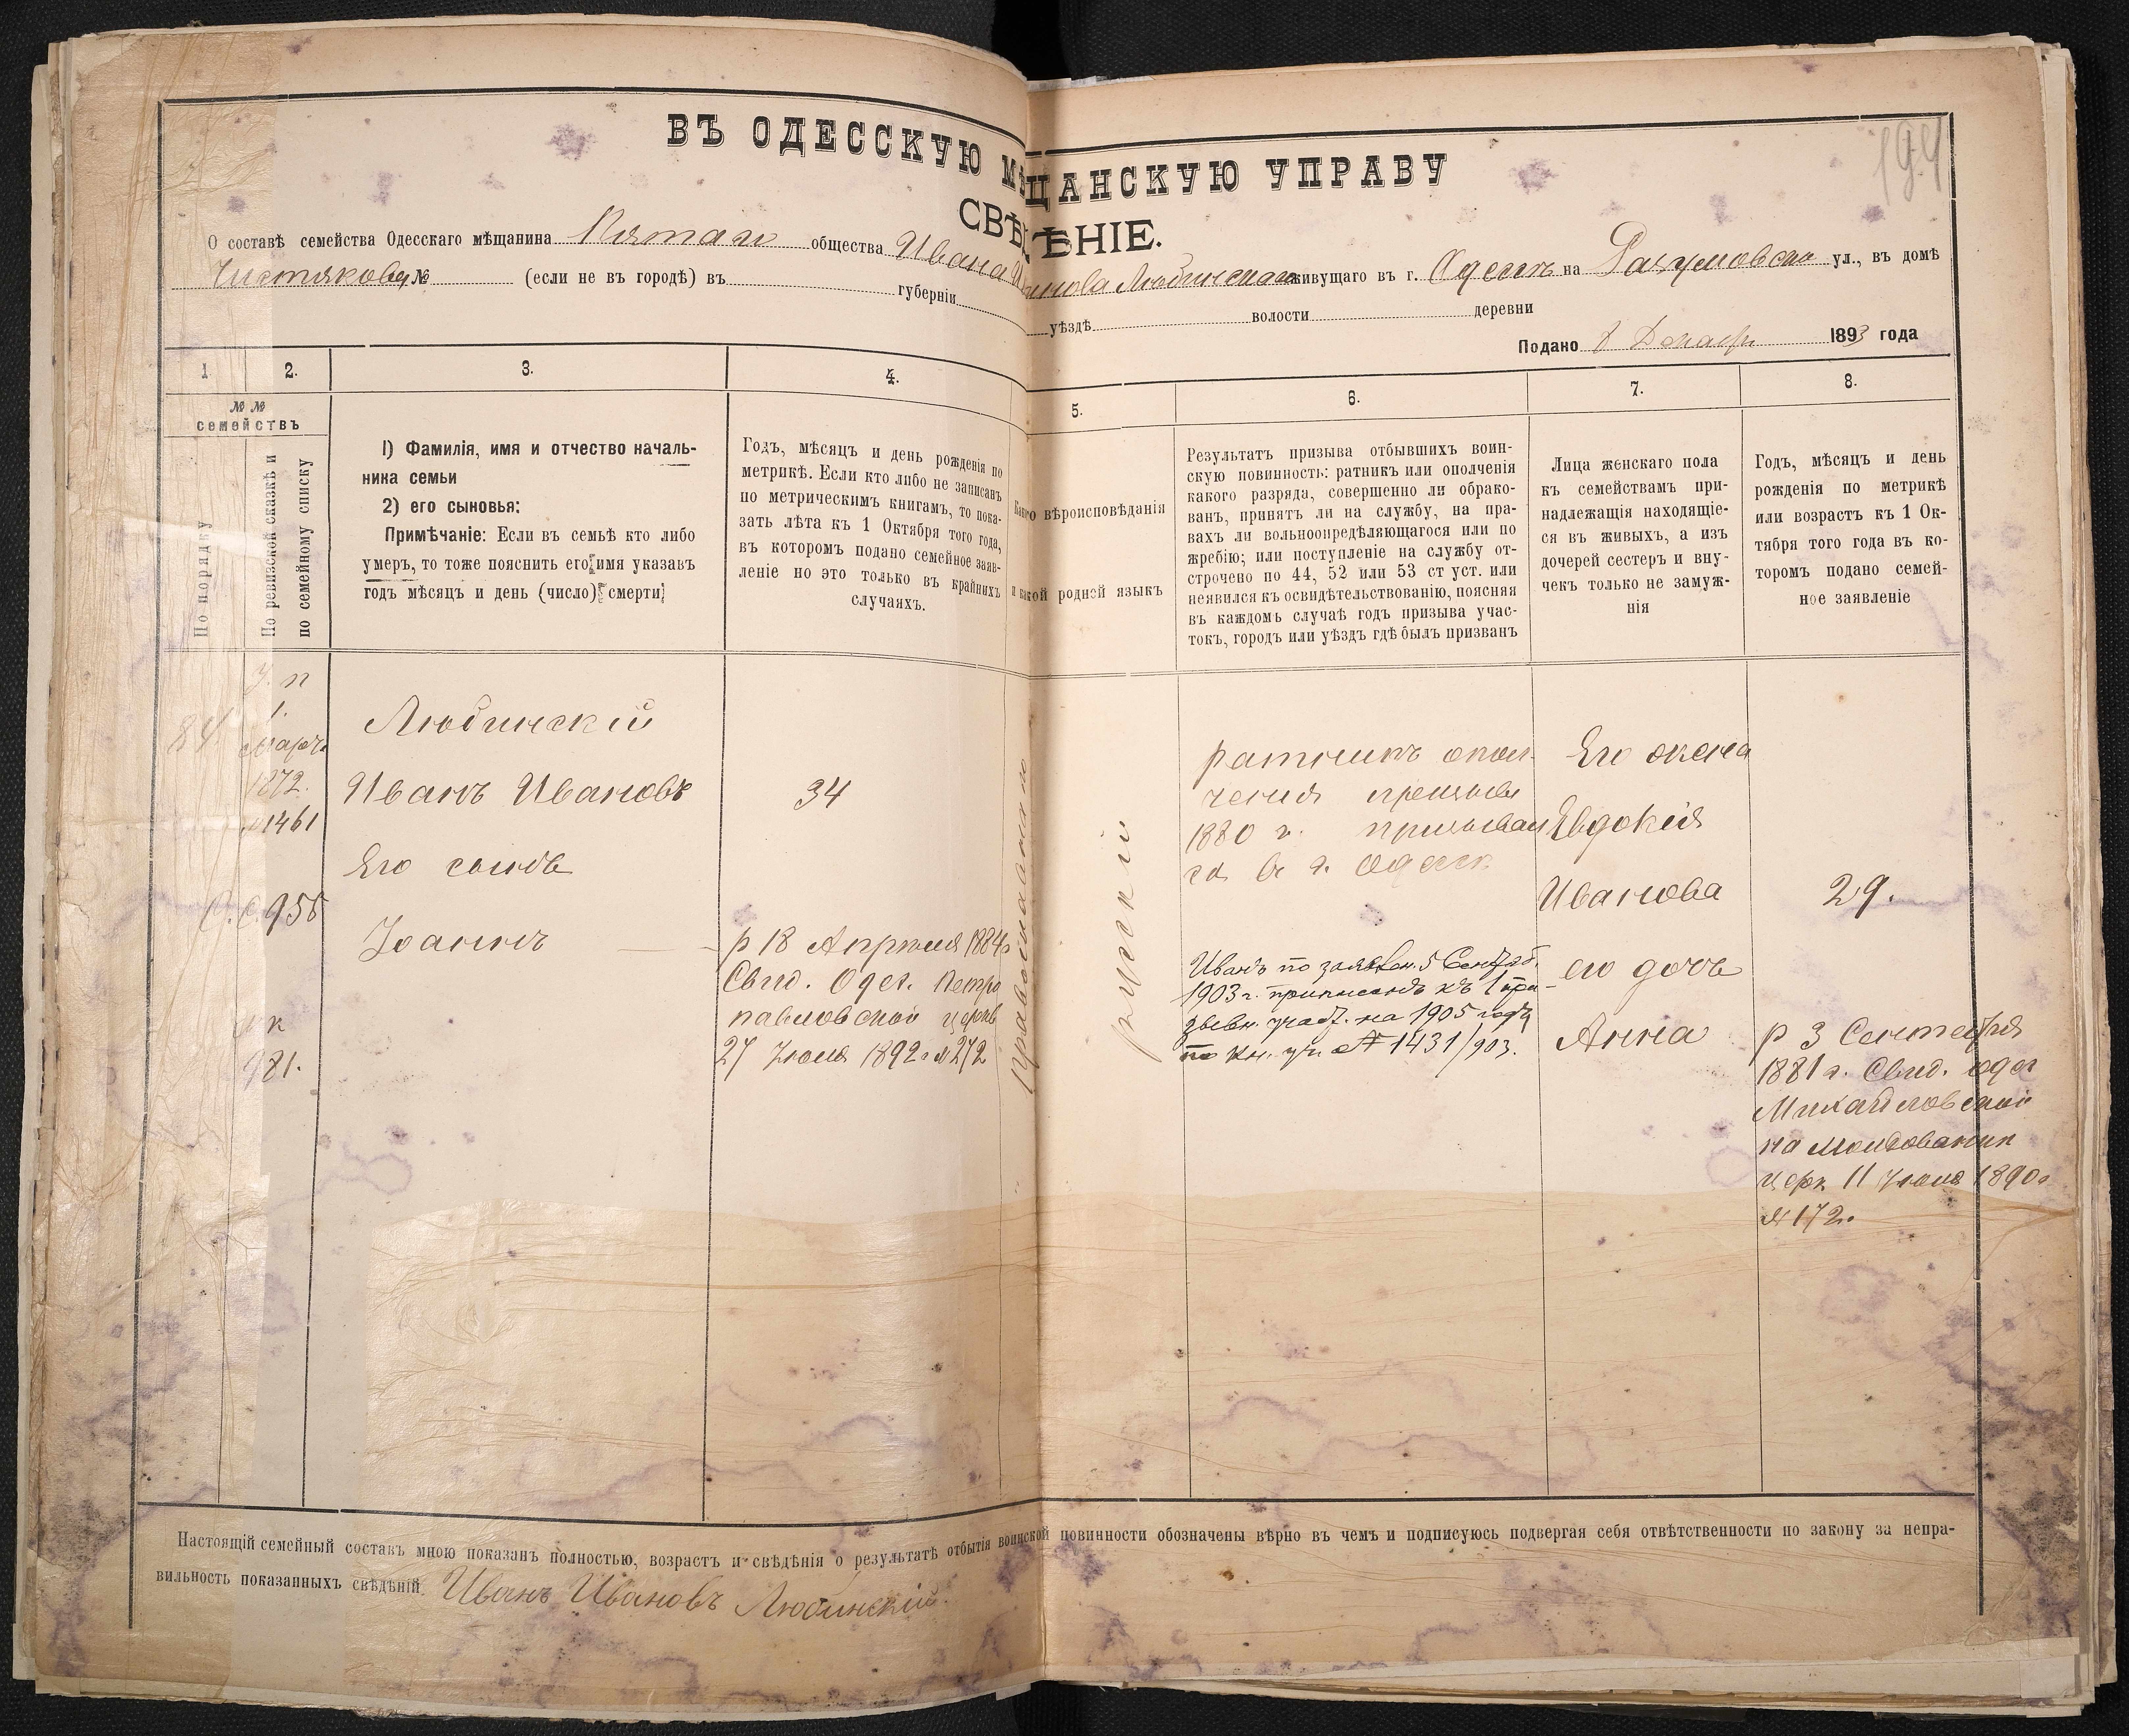 194
ВЪ ОДЕССКУЮ МѢЩАНСКУЮ УПРАВУ
СВѢДѢНІЕ.
О составѣ семейства Одесскаго мѣщанина Пятаго общества Ивана Иванова Любинскаго живущаго въ г. Одессѣ на Разумовской ул., въ домѣ
Чистякова № (если не въ городѣ) въ губерніи уѣздѣ волости деревни
Подано 8 Декабря 1893 года
1 2. 3. 4. 5. 6. 7. 8.
№ №
семействъ
По порядку
По ревизской сказкѣ и
по семейному списку
1) Фамилія, имя и отчество началь-
ника семьи
2) его сыновья:
Примѣчаніе: Если въ семьѣ кто либо
умеръ, то тоже пояснить его имя указавъ
годъ мѣсяцъ и день (число) смерти
Годъ, мѣсяцъ и день рожденія по
метрикѣ. Если кто либо не записанъ
по метрическимъ книгамъ, то пока-
зать лѣта къ 1 Октября того года,
въ которомъ подано семейное заяв-
леніе но это только въ крайнихъ
случаяхъ.
Какого вѣроисповѣданія
и какой родной языкъ
Результатъ призыва отбывшихъ воин-
скую повинность: ратникъ или ополченія
какого разряда, совершенно ли обрако-
ванъ, принятъ ли на службу, на пра-
вахъ ли вольноопредѣляющагося или по
жребію; или поступленіе на службу от-
строчено по 44, 52 или 53 ст уст. или
неявился къ освидѣтельствованію, поясняя
въ каждомъ случаѣ годъ призыва учас-
токъ, городъ или уѣздъ гдѣ былъ призванъ
Лица женскаго пола
къ семействамъ при-
надлежащія находящіе-
ся въ живыхъ, а изъ
дочерей сестеръ и вну-
чекъ только не замуж-
нія
Годъ, мѣсяцъ и день
рожденія по метрикѣ
или возрастъ къ 1 Ок-
тября того года въ ко-
торомъ подано семей-
ное заявленіе
84
1.
Март.
1872.
№1461
С.С. 955
981.
Любинскій
Иванъ Ивановъ
Его сынъ
Іоаннъ
34
р 18 Апрѣля 1884 г
Свид. Одес. Петро
павловской церкв
27 Іюля 1892 г №272
Православнаго
рускій
ратникъ опол-
ченія призыва
1880 г. призывал
ся въ г. Одесс
Иванъ по заявлен. 5 Сентяб.
1903 г. приписанъ къ 1 при-
зывн. участ. на 1905 годъ
по кн. уч № 1431/903.
Его жена
Евдокія
Иванова
его дочь
Анна
29.
р 3 Сентября
1881 г. Свид. одес
Михайловской
на Молдованки
церк 11 Іюля 1890 г
№ 172.
Настоящій семейный составъ мною показанъ полностью, возрастъ и свѣдѣнія о результатѣ отбытія воинской повинности обозначены вѣрно въ чемъ и подписуюсь подвергая себя отвѣтственности по закону за непра-
вильность показанныхъ свѣдѣній. Иванъ Ивановъ Любинскій.